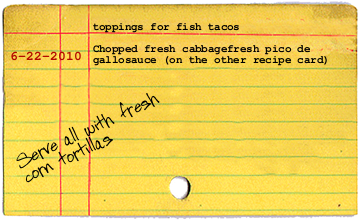 toppings for fish tacos
6-22-2010
Chopped fresh cabbagefresh pico de
gallosauce (on the other recipe card)
Serve all with fresh
corn tortillas